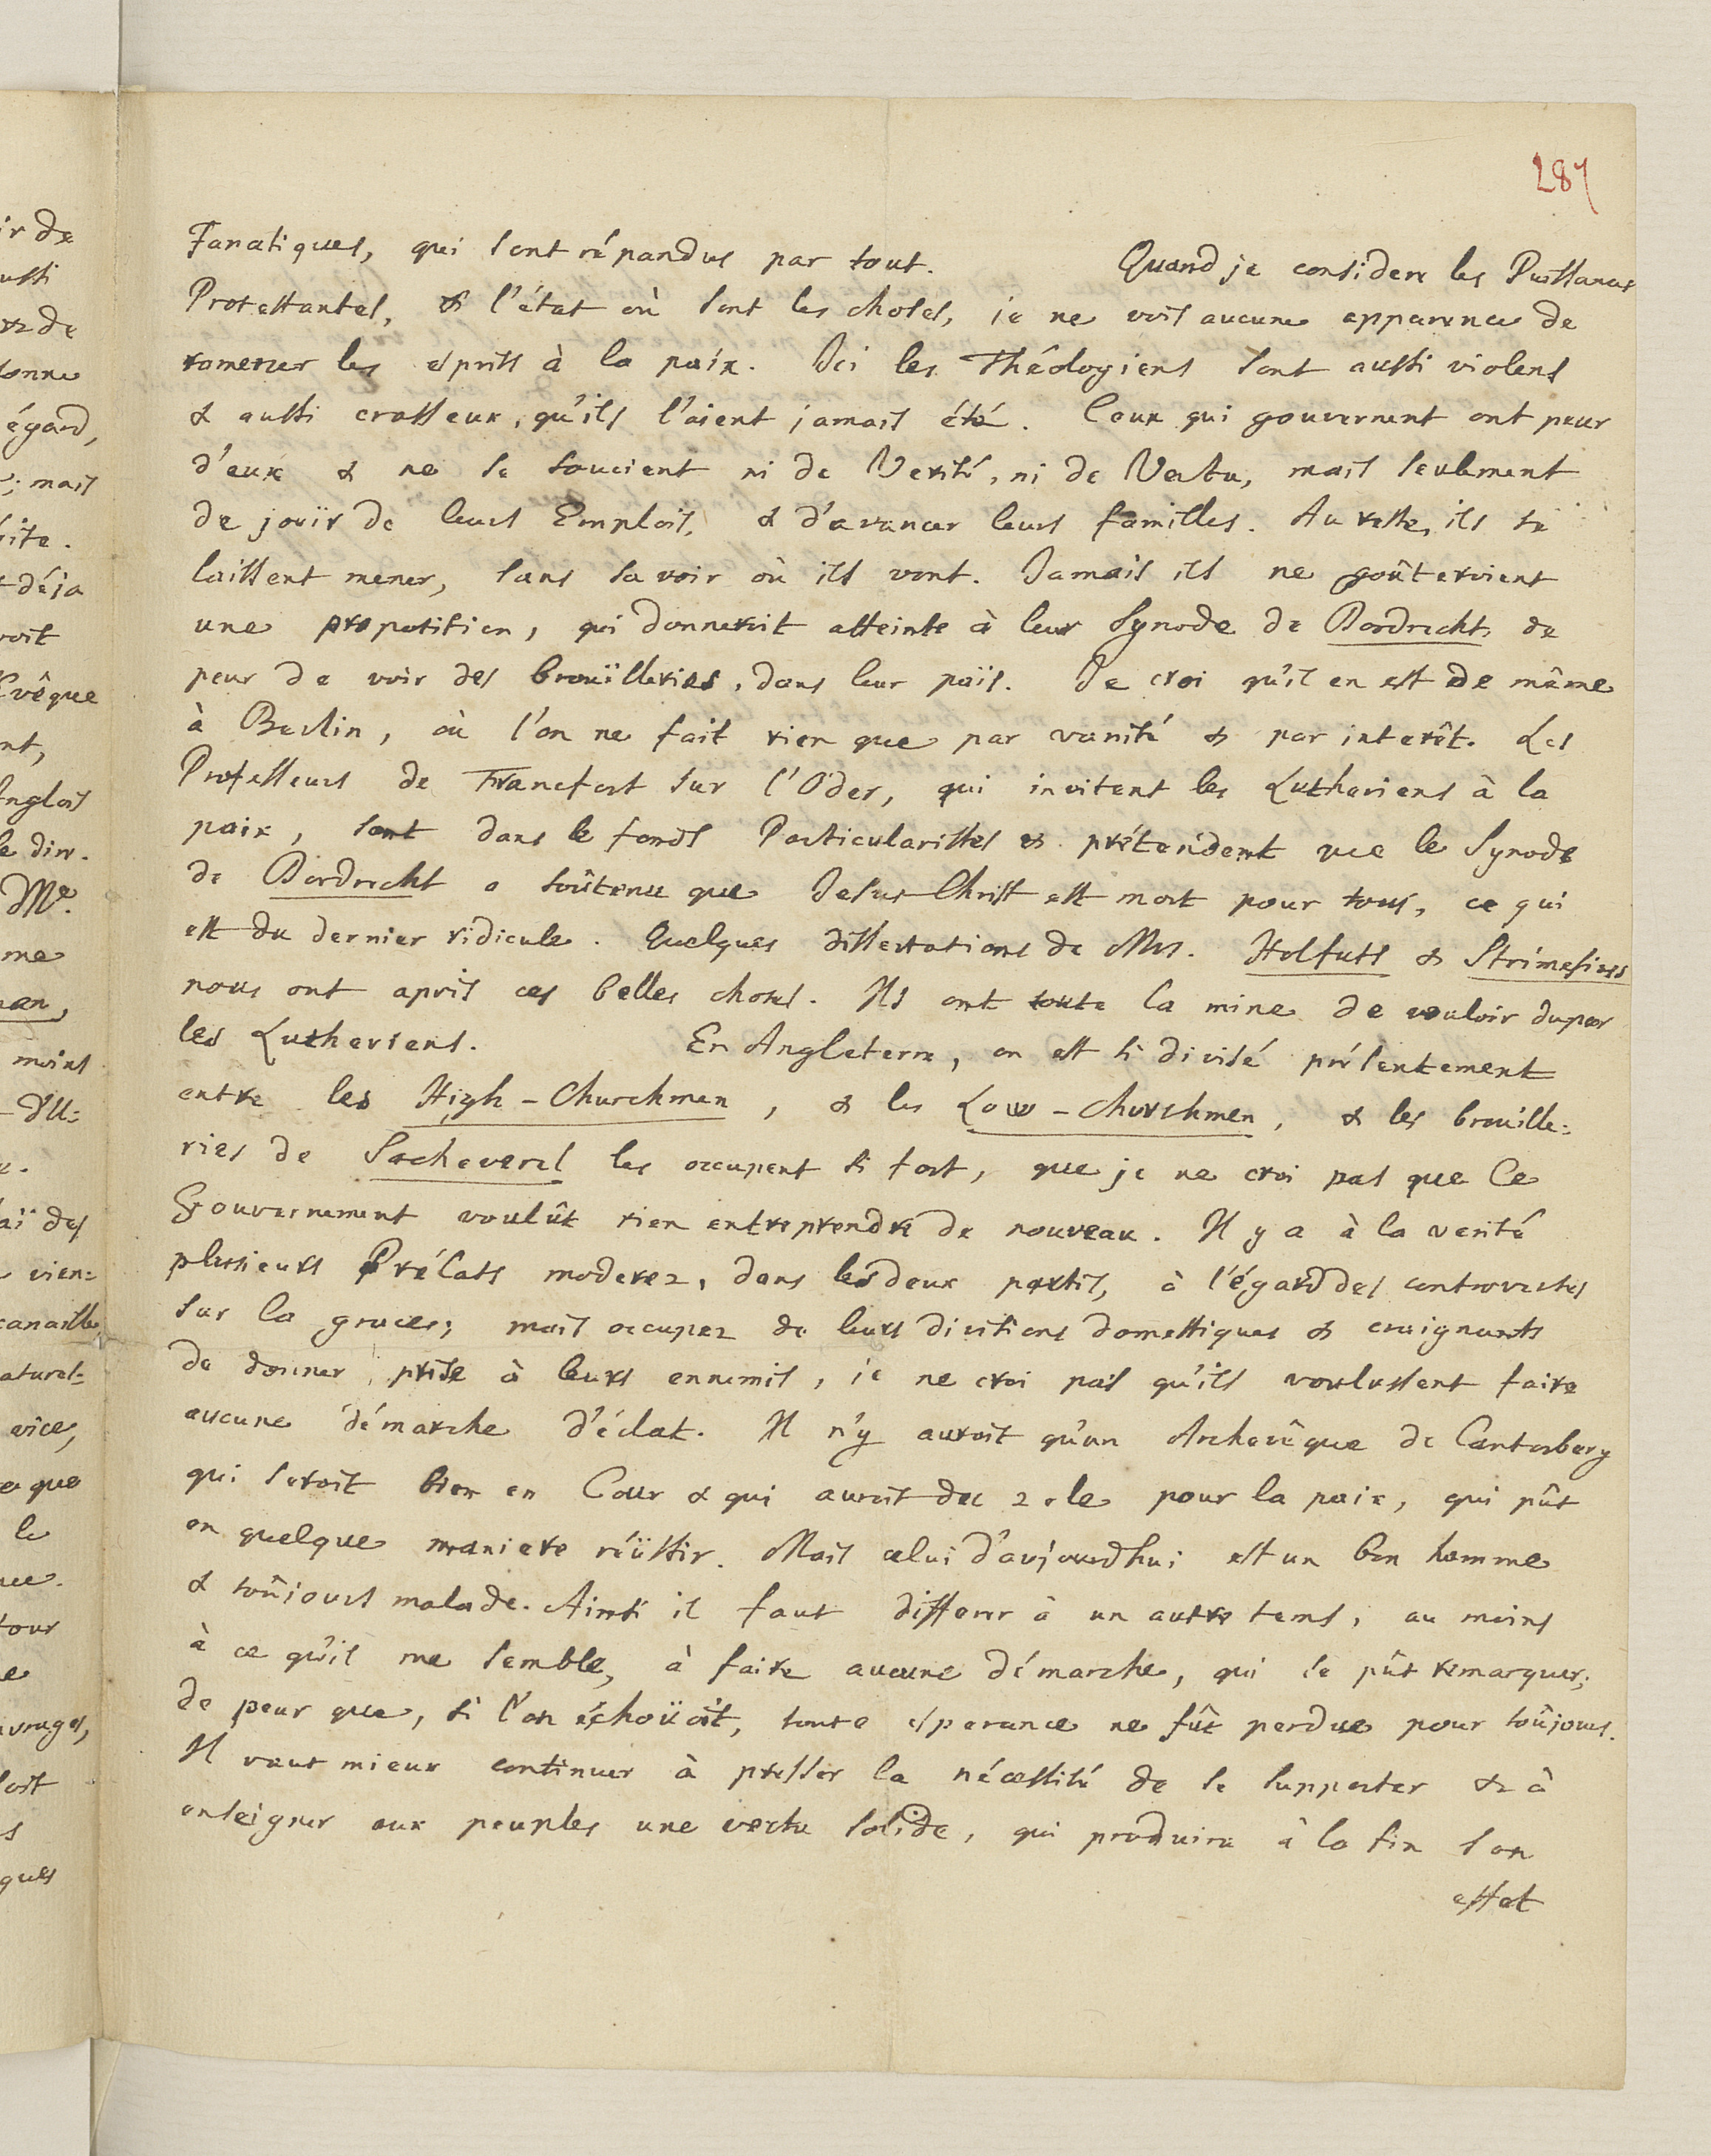 287
Fanatiques, qui sont répandus par tout. Quand je considere les Puissances
Protestantes, & l'état où sont les choses, je ne vois aucune apparence de
ramener les esprits à la paix. Ici les Théologiens sont aussi violens
& aussi crasseux, qu'ils l'aient jamais été. Ceux qui gouvernent ont peur
d'eux & ne se soucient ni de Verité, ni de Vertu, mais seulement
de jouïr de leurs Emplois, & d'avancer leurs familles. Au reste, ils se
laissent mener, sans savoir où ils vont. Jamais ils ne goûteroient
une proposition, qui donneroit atteinte à leur Synode de Dordrecht, de
peur de voir des brouïlleries, dans leur païs. Je croi qu'il en est de même
à Berlin, où l'on ne fait rien que par vanité & par interêt. Les
Professeurs de Francfort sur l'Oder, qui invitent les Lutheriens à la
paix, sont dans le fonds Particularistes & prétendent que le Synode
de Dordrecht a soûtenu que Jesus-Christ est mort pour tous, ce qui
est du dernier ridicule. Quelques dissertations de Mrs. Holfuts & Strimesius
nous ont apris ces belles choses. Ils ont toute la mine de vouloir duper
les Lutheriens. En Angleterre, on est si divisé présentement
entre les High-Churchmen, & les Low-Churchmen, & les brouille=
ries de Sacheverel les occupent si fort, que je ne croi pas que le
Gouvernement voulût rien entreprendre de nouveau. Il y a à la verité
plusieurs Prélats moderez, dans les deux partis, à l'égard des controverses
sur la grace; mais occupez de leurs divisions domestiques & craignants
de donner prise à leurs ennemis, je ne croi pas qu'ils voulussent faire
aucune démarche d'éclat. Il n'y auroit qu'un Archevêque de Cantorbery
qui seroit bien en Cour & qui auroit du zele pour la paix, qui pût
en quelque maniere réüssir. Mais celui d'aujourdhui est un bon homme
& toûjours malade. Ainsi il faut differer à un autre tems, au moins
à ce qu'il me semble, à faire aucune démarche, qui se pût remarquer;
de peur que, si l'on échoüoit, toute esperance ne fût perdue pour toûjours.
Il vaut mieux continuer à presser la nécessité de se supporter & à
enseigner aux peuples une vertu solide, qui produira à la fin son
effet